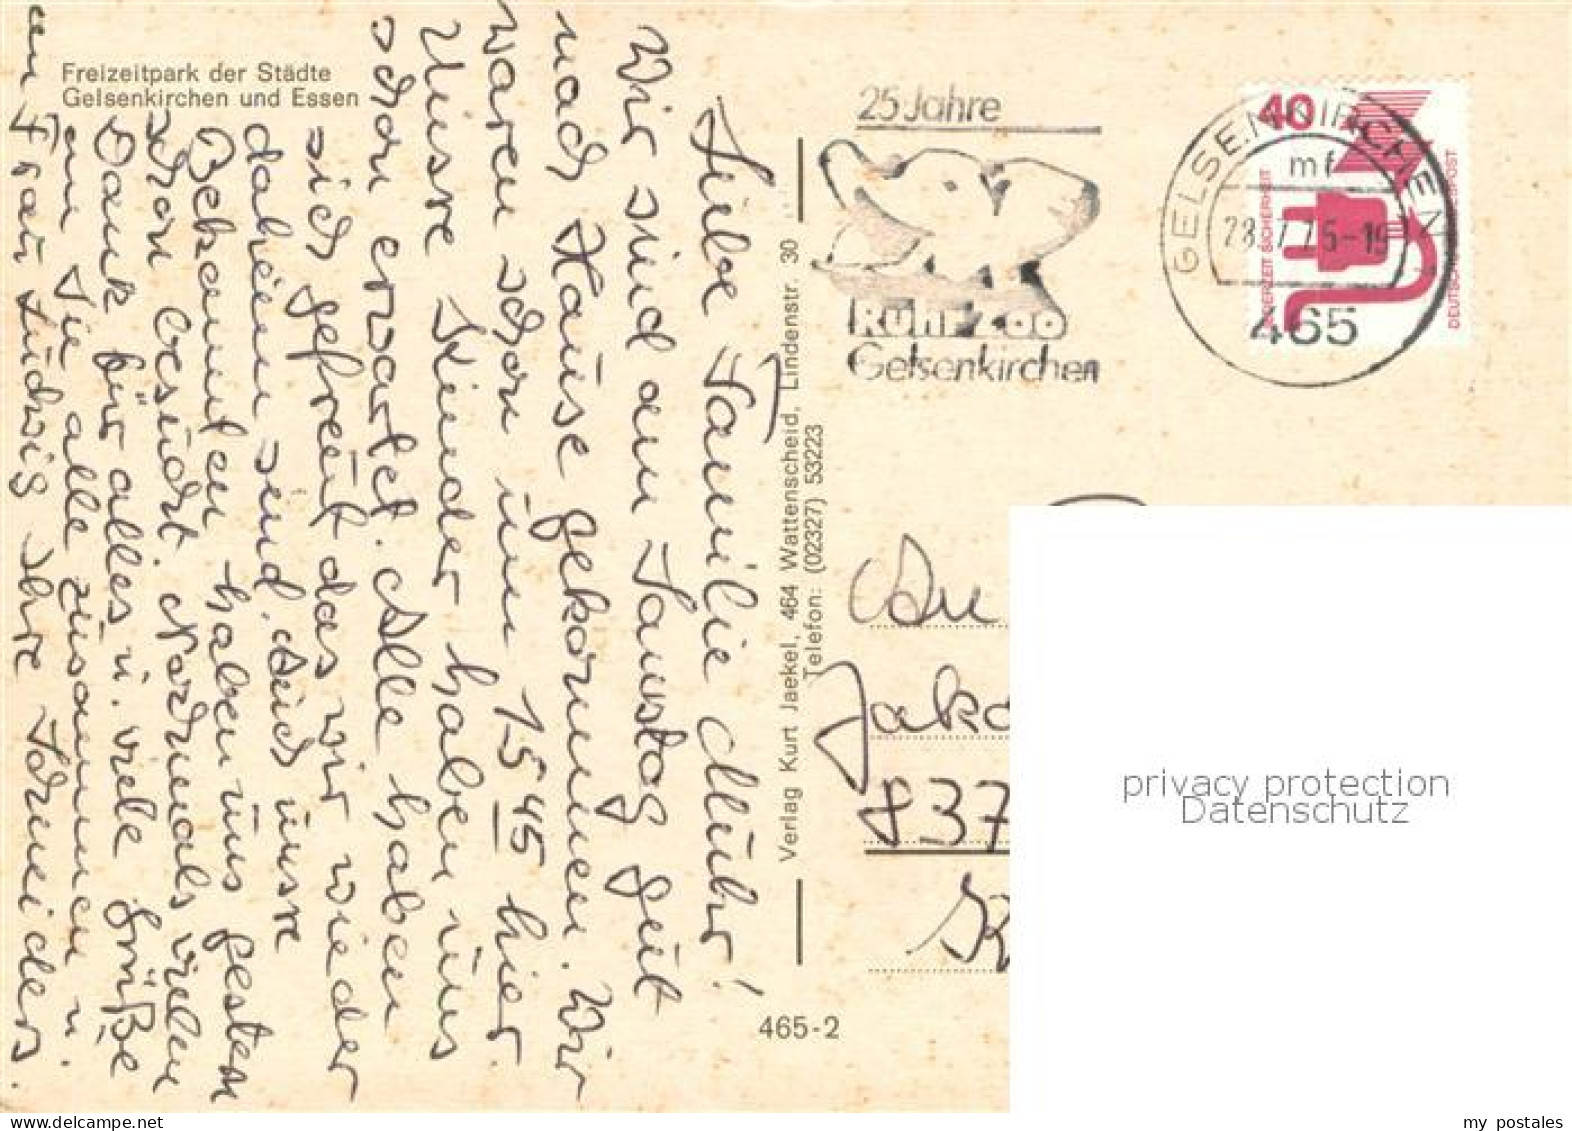 Freizeitpark der Städte
Gelsenkirchen und Essen
Liebe Familie
Wir sind am Samstag gut
nach Hause gekommen. Wir
waren schon um 15 45 hier.
Unsre Kinder haben uns
schon erwartet. Alle haben
sich gefreut das wir wieder
daheim sind, auch unsre
Bekannten haben uns gestern
schon besucht. Nochmals vielen
Dank für alles u. viele Grüße
an Sie alle zusammen u.
an Frau Ludwig Ihre Schneiders.
Verlag Kurt Jaekel, 464 Wattenscheid, Lindenstr. 30
Telefon: (02327) 53223
465-2
25 Jahre
RUHR ZOO
Gelsenkirchen
GELSENKIRCHEN
mf
28.7.75-19
465
40
JEDERZEIT SICHERHEIT
DEUTSCHE BUNDESPOST
An
Jako
837
R
privacy protection
Datenschutz
my postales